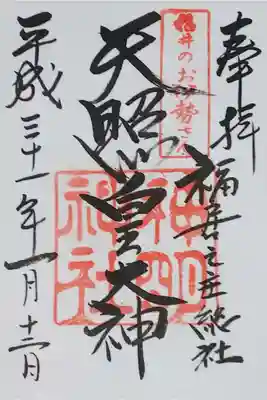 奉拝
福井のお伊勢さん
福居之庄総社
天照皇大神
神明
神社
平成三十一年一月十二日